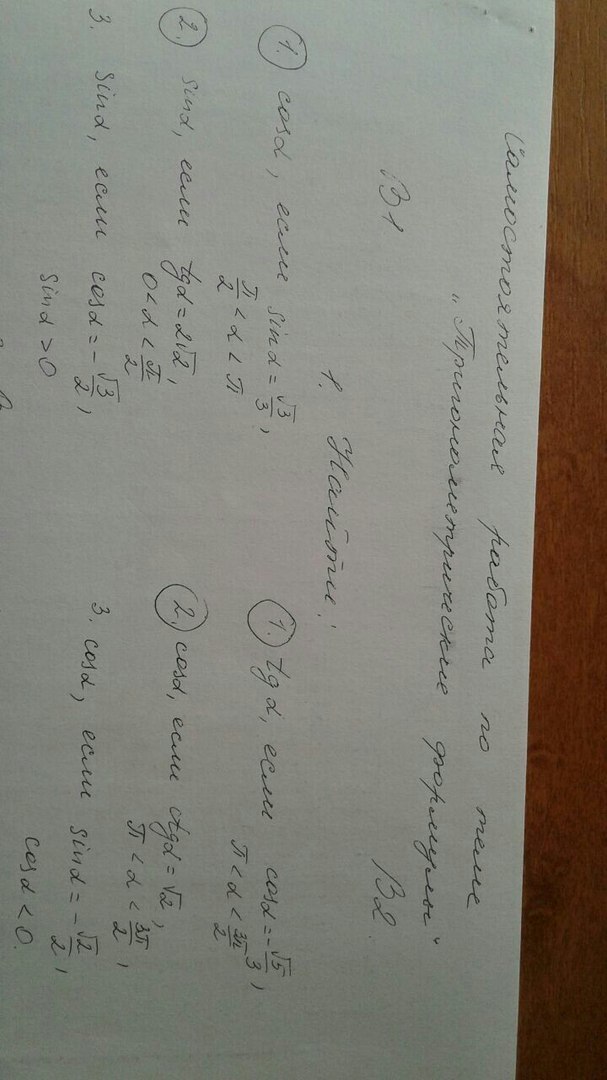 Самостоятельная работа по теме
„Тригонометрические формулы“
В1 В2.
1. Найти:
1. cosα, если sinα = √3/3,
π/2 < α < π
2. sinα, если tgα = 2√2,
0 < α < π/2
3. sinα, если cosα = -√3/2,
sinα > 0
1. tgα, если cosα = -√5/3,
π < α < 3π/2
2. cosα, если ctgα = √2,
π < α < 3π/2,
3. cosα, если sinα = -√2/2,
cosα < 0.